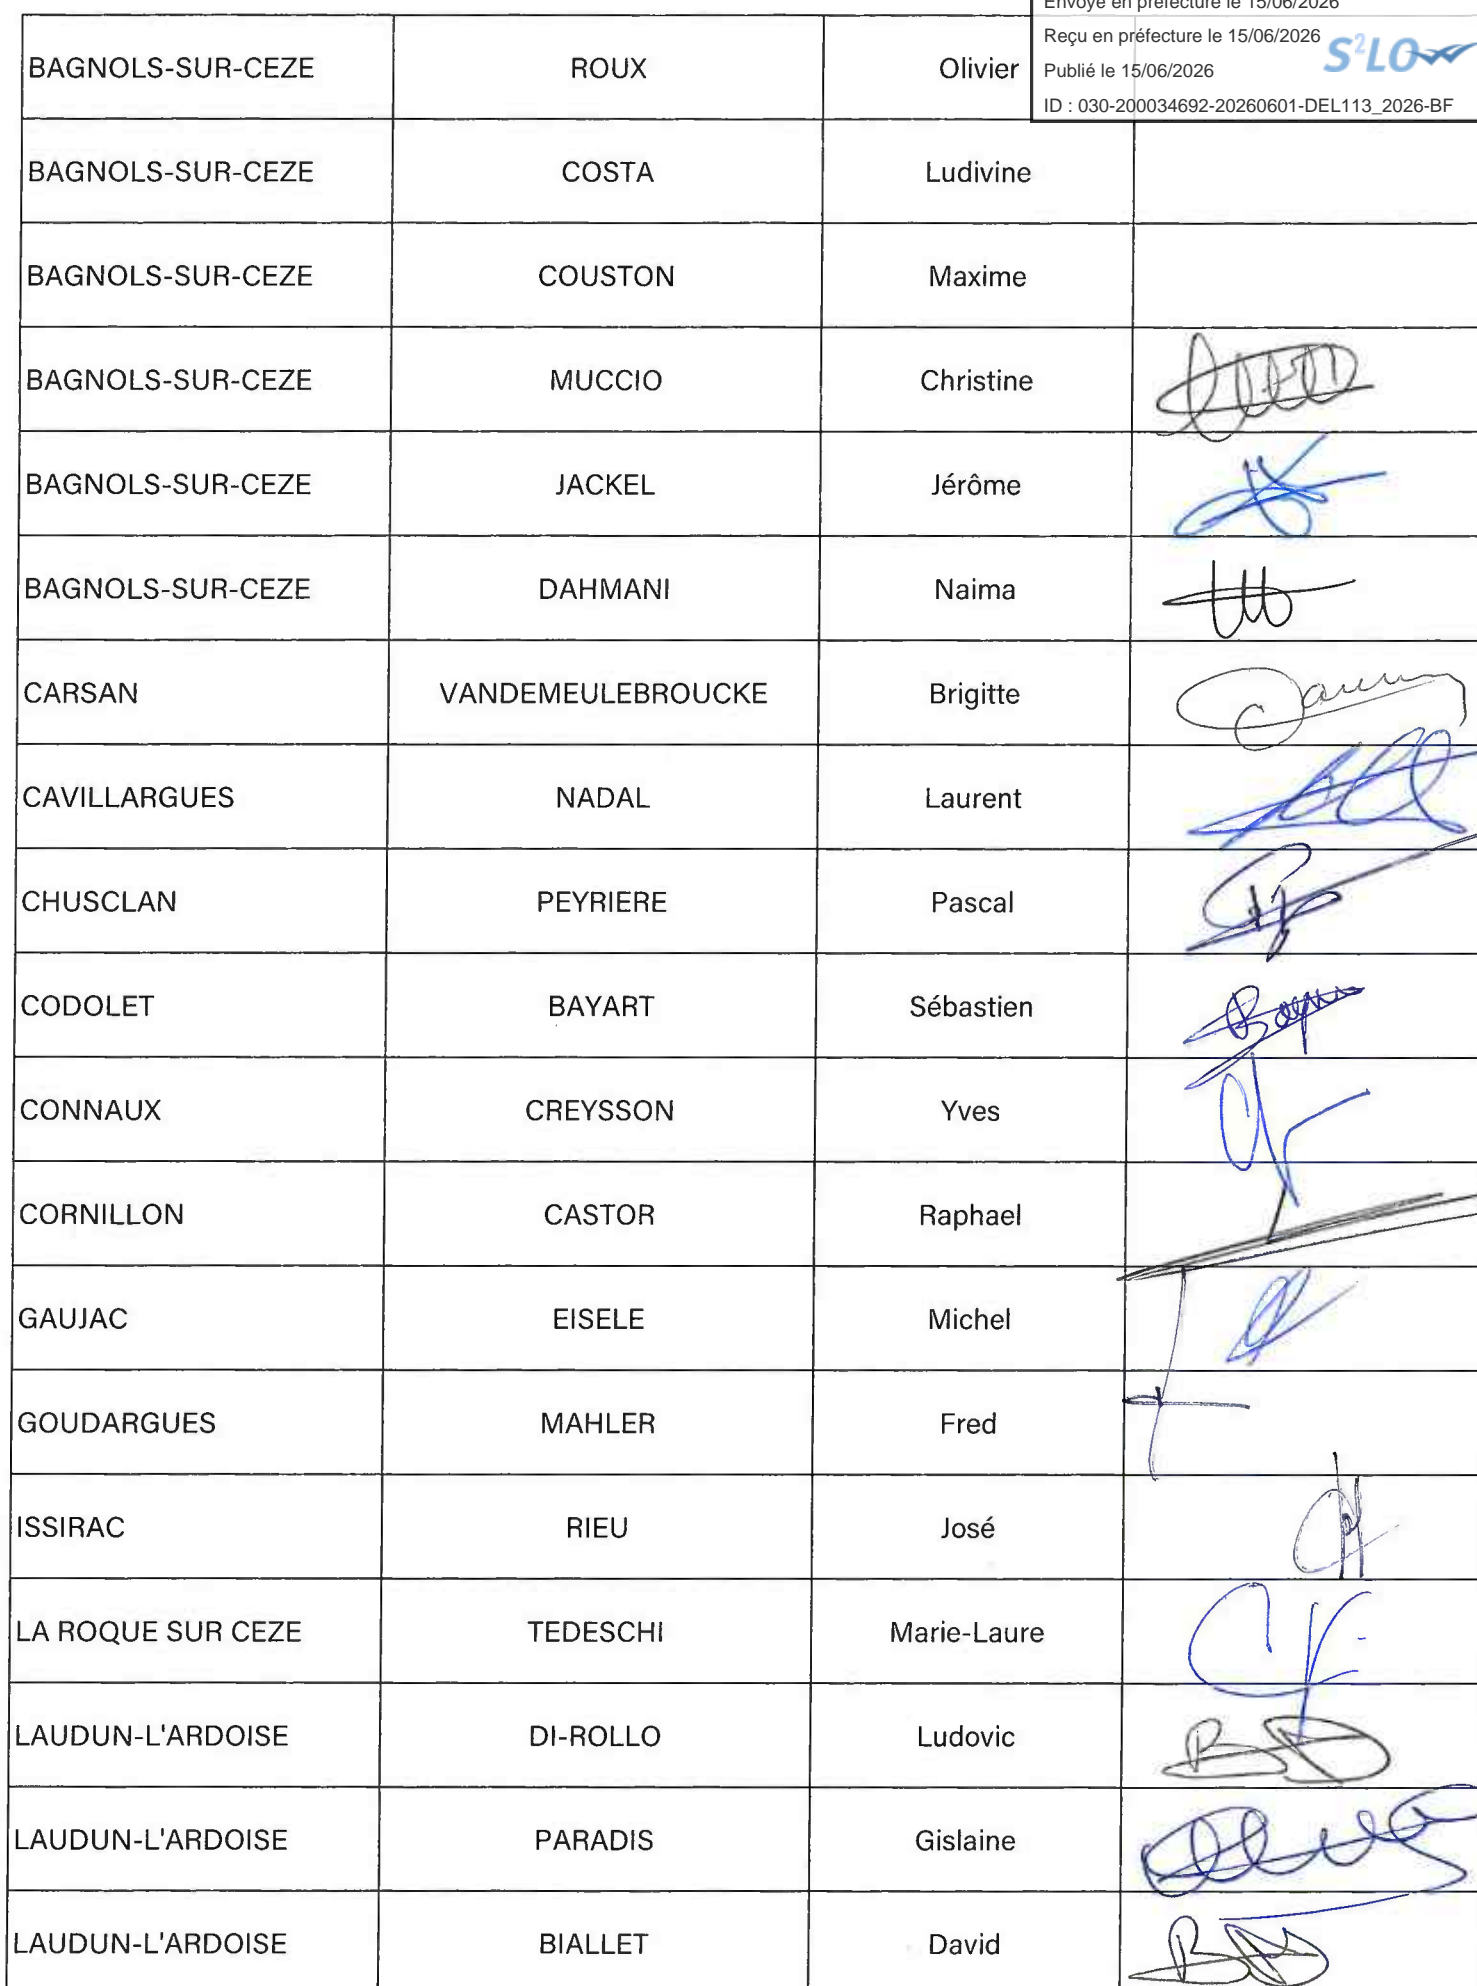 Envoyé en préfecture le 15/06/2026
Reçu en préfecture le 15/06/2026
S²LO
Publié le 15/06/2026
ID : 030-200034692-20260601-DEL113_2026-BF
BAGNOLS-SUR-CEZE ROUX Olivier
BAGNOLS-SUR-CEZE COSTA Ludivine
BAGNOLS-SUR-CEZE COUSTON Maxime
BAGNOLS-SUR-CEZE MUCCIO Christine
BAGNOLS-SUR-CEZE JACKEL Jérôme
BAGNOLS-SUR-CEZE DAHMANI Naima
CARSAN VANDEMEULEBROUCKE Brigitte
CAVILLARGUES NADAL Laurent
CHUSCLAN PEYRIERE Pascal
CODOLET BAYART Sébastien
CONNAUX CREYSSON Yves
CORNILLON CASTOR Raphael
GAUJAC EISELE Michel
GOUDARGUES MAHLER Fred
ISSIRAC RIEU José
LA ROQUE SUR CEZE TEDESCHI Marie-Laure
LAUDUN-L'ARDOISE DI-ROLLO Ludovic
LAUDUN-L'ARDOISE PARADIS Gislaine
LAUDUN-L'ARDOISE BIALLET David